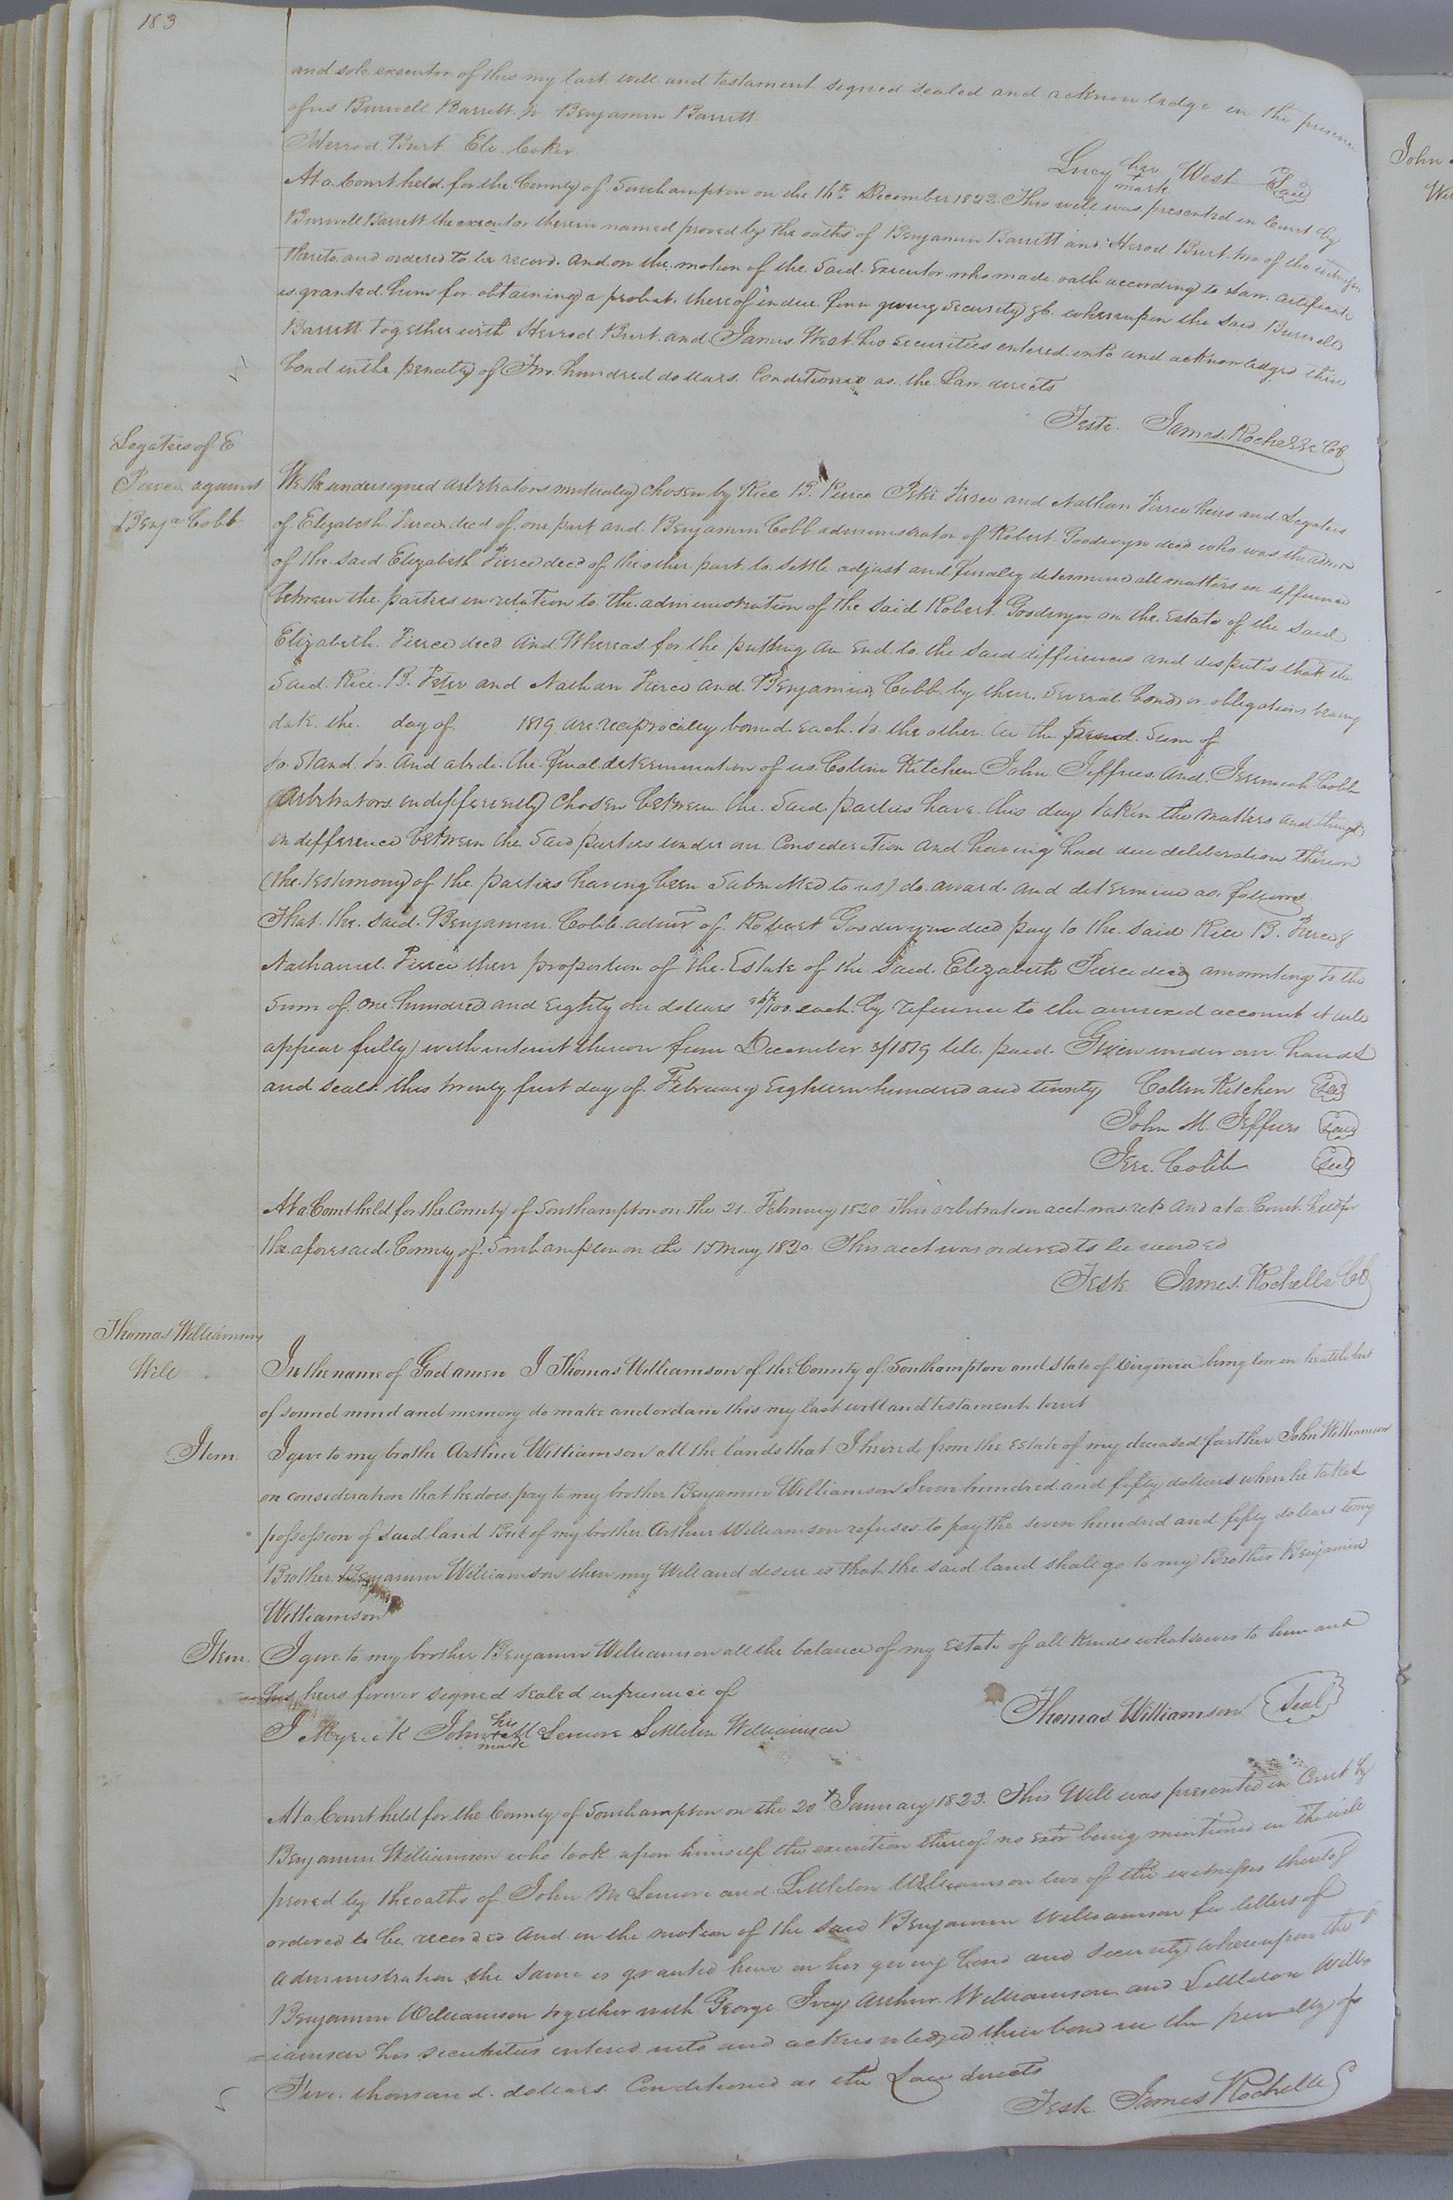 183
and sole executor of this my last will and testament signed sealed and acknowledge in the presence
of us Burwell Barrett Jr Benjamin Barrett
Herrod Burt Eli Coker
Lucy her + mark West Seal
At a Court held for the County of Southampton on the 16th December 1822 This will was presented in Court by
Burwell Barrett the executor therein named proved by the oaths of Benjamin Barrett and Herod Burt two of the witnesses
thereto and ordered to be record. and on the motion of the said Executor who made oath according to Law certificate
is granted him for obtaining a probat thereof in due form giving security &c. whereupon the said Burwell
Barrett together with Herrod Burt and James West his securities entered into and acknowledged their
bond in the penalty of Two hundred dollars Conditioned as the Law directs
Teste James Rochelle CC
Legatees of E
Pierce against
Benja Cobb
We the undersigned arbitrators mutually chosen by Rice B. Pierce Peter Pierce and Nathan Pierce Heirs and Legatees
of Elizabeth Pierce decd of one part and Benjamin Cobb administrator of Robert Goodwyn decd who was the admr
of the said Elizabeth Pierce decd of the other part to settle adjust and finaley determined all matters in difference
between the parties in relation to the administration of the said Robert Goodwyn on the Estate of the said
Elizabeth Pierce decd and Whereas for the putting an End to the said differences and disputes that the
said Rice B. Peter and Nathan Pierce and Benjamin Cobb by their several bonds or obligations bearing
date the day of 1819 are reciprocalley bound each to the other in the Sum of
to Stand to and abide the final determination of us Colin Kitchen John Jeffries and Jeremiah Cobb
Arbitrators indifferently chosen between the said parties have this day taken the matters and things
in difference between the said parties under our Consideration and having had due deliberation thereon
(the testimony of the parties having been submitted to us) do award and determine as follows
That the said Benjamin Cobb admr of Robert Goodwyn decd pay to the said Rice B. Pierce &
Nathaniel Pierce their proportion of the Estate of the said Elizabeth Pierce decd amounting to the
Sum of one hundred and Eighty one dollars /100 each by reference to the annexed account it will
appear fully with interest thereon from December 3/1819 till paid. Given under our hands
and seals this twenty first day of February Eighteen hundred and twenty Collin Kitchen Seal
John M. Jeffries Seal
Jere. Cobb Seal
At a Court held for the County of Southampton on the 21 February 1820 This arbitration acct was retd and at a Court held for
the aforesaid County of Southampton on the 15 May 1820. This acct was ordered to be recorded
Teste James Rochelle CC
Thomas Williamson
Will
In the name of God amen I Thomas Williamson of the County of Southampton and State of Virginia being low in health but
of sound mind and memory do make and ordain this my last will and testament towit
Item I give to my brothe Arthur Williamson all the lands that I heired from the Estate of my deceased farther John Williamson
on consideration that he does pay to my brother Benjamin Williamson Seven hundred and fifty dollars when he takes
possession of said land But if my brother Arthur Williamson refuses to pay the seven hundred and fifty dollars to my
Brother Benjamin Williamson then my Will and desire is that the said land shall go to my Brother Benjamin
Williamson
Item I give to my brother Benjamin Williamson all the balance of my Estate of all Kinds whatsoever to him and
his heirs forever signed sealed in presence of
Thomas Williamson Seal
J Myrick John his + mark M Lemore Littleton Williamson
At a Court held for the County of Southampton on the 20th January 1823. This Will was presented in Court by
Benjamin Williamson who took upon himself the execution thereof no Exor being mentioned in the will
proved by the oaths of John M Lemore and Littleton Williamson two of the witnesses thereof
ordered to be recorded and on the motion of the said Benjamin Williamson for letters of
administration the same is granted him on his giving bond and security whereupon the sd
Benjamin Williamson together with George Ivey Arthur Williamson and Littleton Will
=iamson his securities entered into and acknowledged their bond in the penalty of
Five thousand dollars Conditioned as the Law directs
Teste James Rochelle C
John
Wi